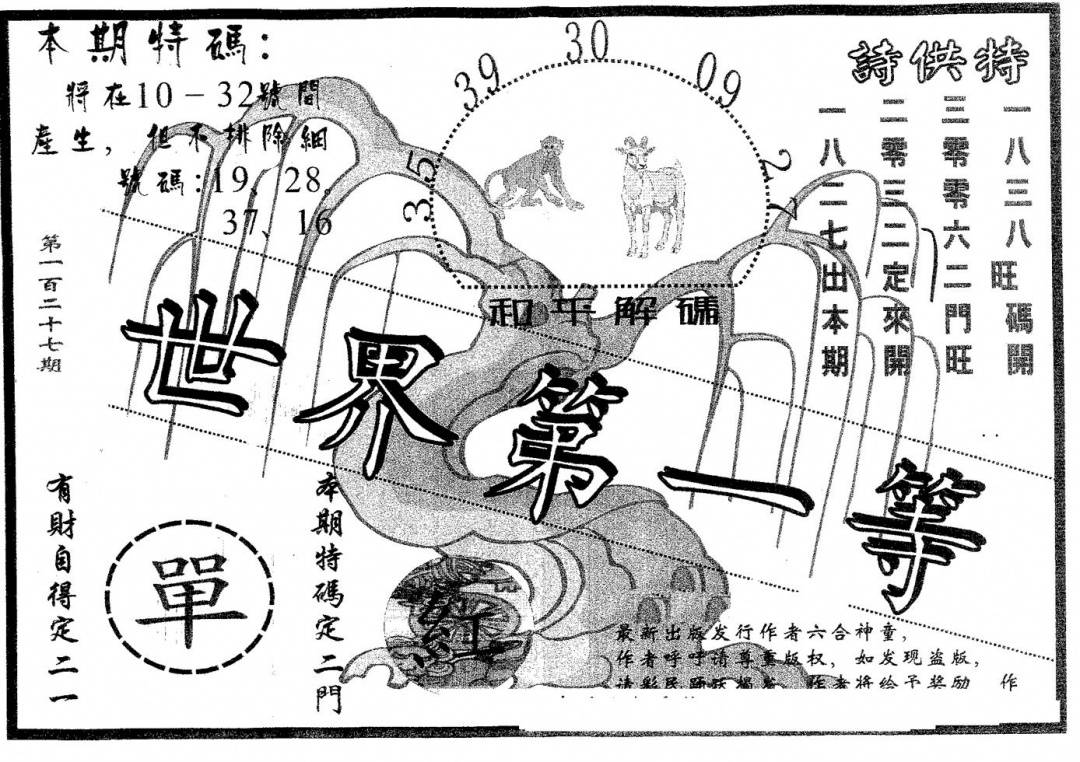 本期特碼：
將在10－32號間
產生，但不排除細
號碼：19、28。
37、16
第一百二十七期
35
39
30
09
27
和平解碼
特供詩
一八三八旺碼開
三零零六二門旺
二零三二定來開
一八二七出本期
世界第一等
有財自得定二一
單
本期特碼定二門
紅
最新出版发行作者六合神童，
作者呼吁请尊重版权，如发现盗版，
请彩民踊跃揭发 作者将给予奖励 作